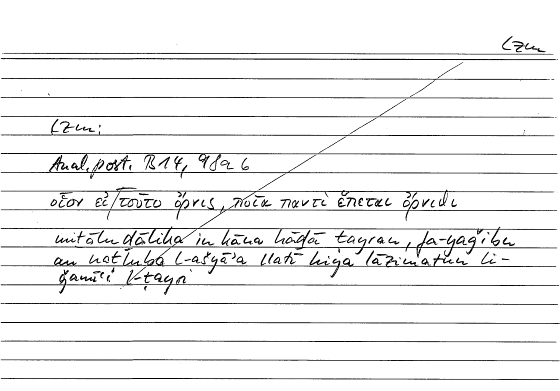 lzm
lzm:
Anal. post. B 14, 98a 6
οἷον εἰ τοῦτο ὄρνις, ποῖα παντὶ ἕπεται ὄρνιθι
miṯālu ḏālika in kāna hāḏā ṭayran, fa-yaǧibu
an naṭluba l-ašyāʾa llatī hiya lāzimatun li-
ǧamīʿi l-ṭayri